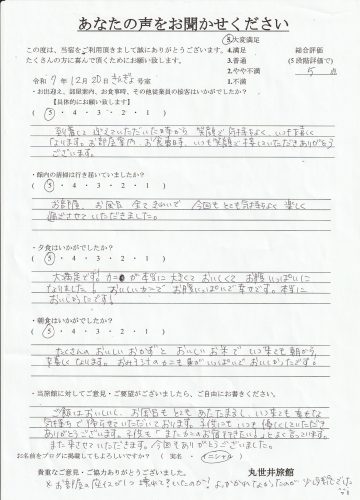 あなたの声をお聞かせください
この度は、当宿をご利用頂きまして誠にありがとうございます。
たくさんの方に喜んで頂くためにお願い致します。
⑤大変満足
4.満足
3.普通
2.やや不満
1.不満
総合評価
(5段階評価で)
5 点
令和 7年 12月 20日 さんざ 号室
・お出迎え、部屋案内、お食事時、その他従業員の接客はいかがでしたか?
【具体的にお願い致します】
(⑤・4・3・2・1)
到着して迎えていただいた時から 笑顔で気持ちよく、いつも良く
なります。お部屋案内、お食事時、いつも笑顔で接していただきありがとう
ございます。
・館内の清掃は行き届いていましたか?
(⑤・4・3・2・1)
お部屋、お風呂 全てきれいで 今回も とても気持ちよく 楽しく
過ごさせていただきました。
・夕食はいかがでしたか?
(⑤・4・3・2・1)
大満足です! カニが本当に大きくておいしくて お腹いっぱいに
なりました! おいしいカニでお腹いっぱいで幸せです。本当に
おいしかったです!
・朝食はいかがでしたか?
(⑤・4・3・2・1)
たくさんのおいしいおかずと おいしいお米で いつ来ても朝から
お みそ汁のカニも
・当旅館に対してご意見・ご要望がございましたら、ご自由にお書きください。
ご飯はおいしいし、お風呂もとてもあたたまるし、いつ来ても幸せな
気持ちで帰らせていただいております。子供にもいつも優しくしていただき
ありがとうございます。子供も「またカニのお宿行きたい!」とよく言っています。
また来させていただきます。今回もありがとうございました。
お名前をブログに掲載してもよろしいですか?( 実名 ・ イニシャル )
貴重なご意見・ご協力ありがとうございました。
丸世井旅館
※お部屋の座イスが1つ壊れていたのか?